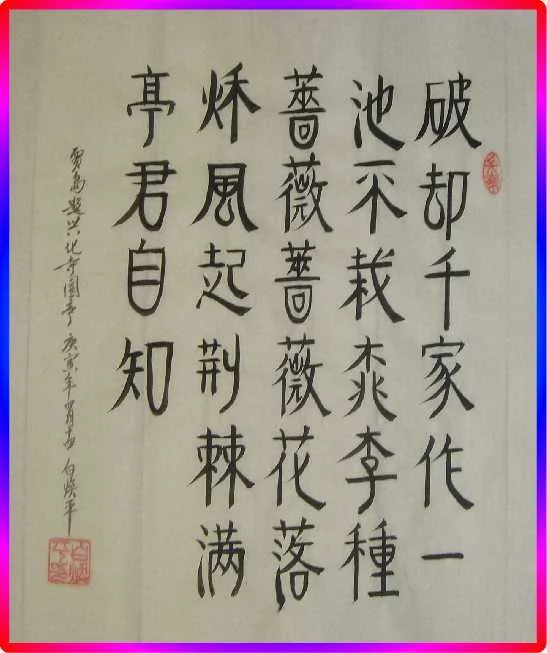 破却千家作一
池不栽桃李種
薔薇薔薇花落
秌風起荆棘满
亭君自知
賈島題兴化寺園亭 庚寅年 白焕平